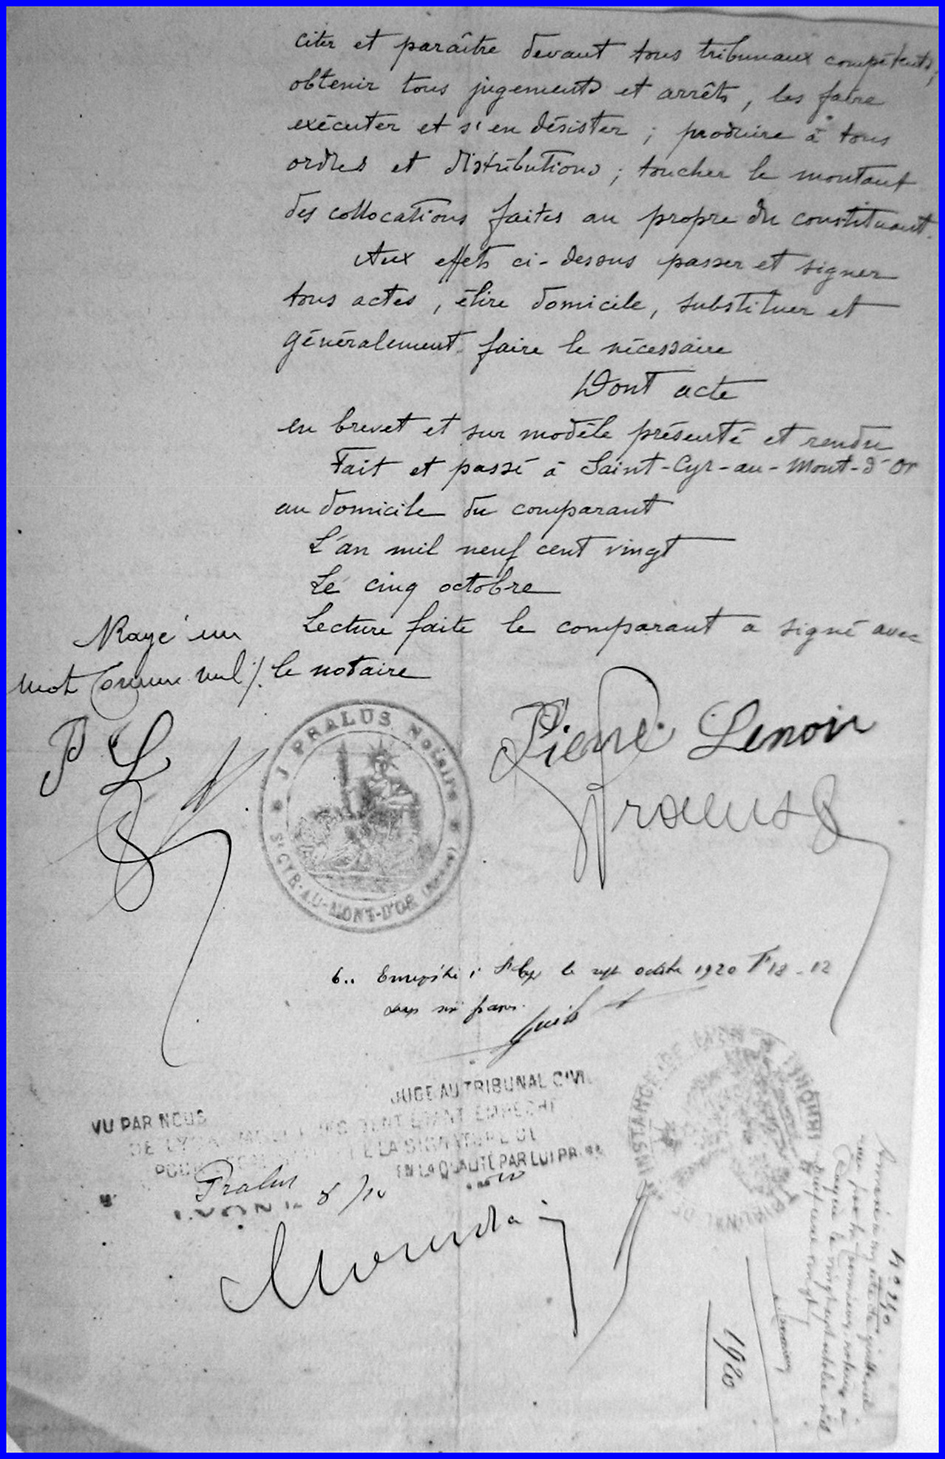 citer et paraître devant tous tribunaux compétents,
obtenir tous jugements et arrêts, les faire
exécuter et s'en désister ; produire à tous
ordres et distributions ; toucher le montant
des collocations faites au propre du constituant.
Aux effets ci-dessus passer et signer
tous actes, élire domicile, substituer et
généralement faire le nécessaire
Dont acte
en brevet et sur modèle présenté et rendu
Fait et passé à Saint-Cyr-au-Mont-d'Or
au domicile du comparant
L'an mil neuf cent vingt
Le cinq octobre
Lecture faite le comparant a signé avec
le notaire
Rayé un
mot comme nul
P L
J. PRALUS Notaire
St CYR-AU-MONT-D'OR (Rhône)
Pierre Lenoir
Pralus
6.. Enregistré à St Cyr le sept octobre 1920 Fo 12
six francs
VU PAR NOUS
JUGE AU TRIBUNAL CIVIL
DE LYON
EMPÊCHÉ
POUR
LA SIGNATURE DE
EN LA QUALITÉ PAR LUI PRISE
Pralus
LYON LE 8/10
TRIBUNAL DE 1re INSTANCE DE LYON
No 240
1920